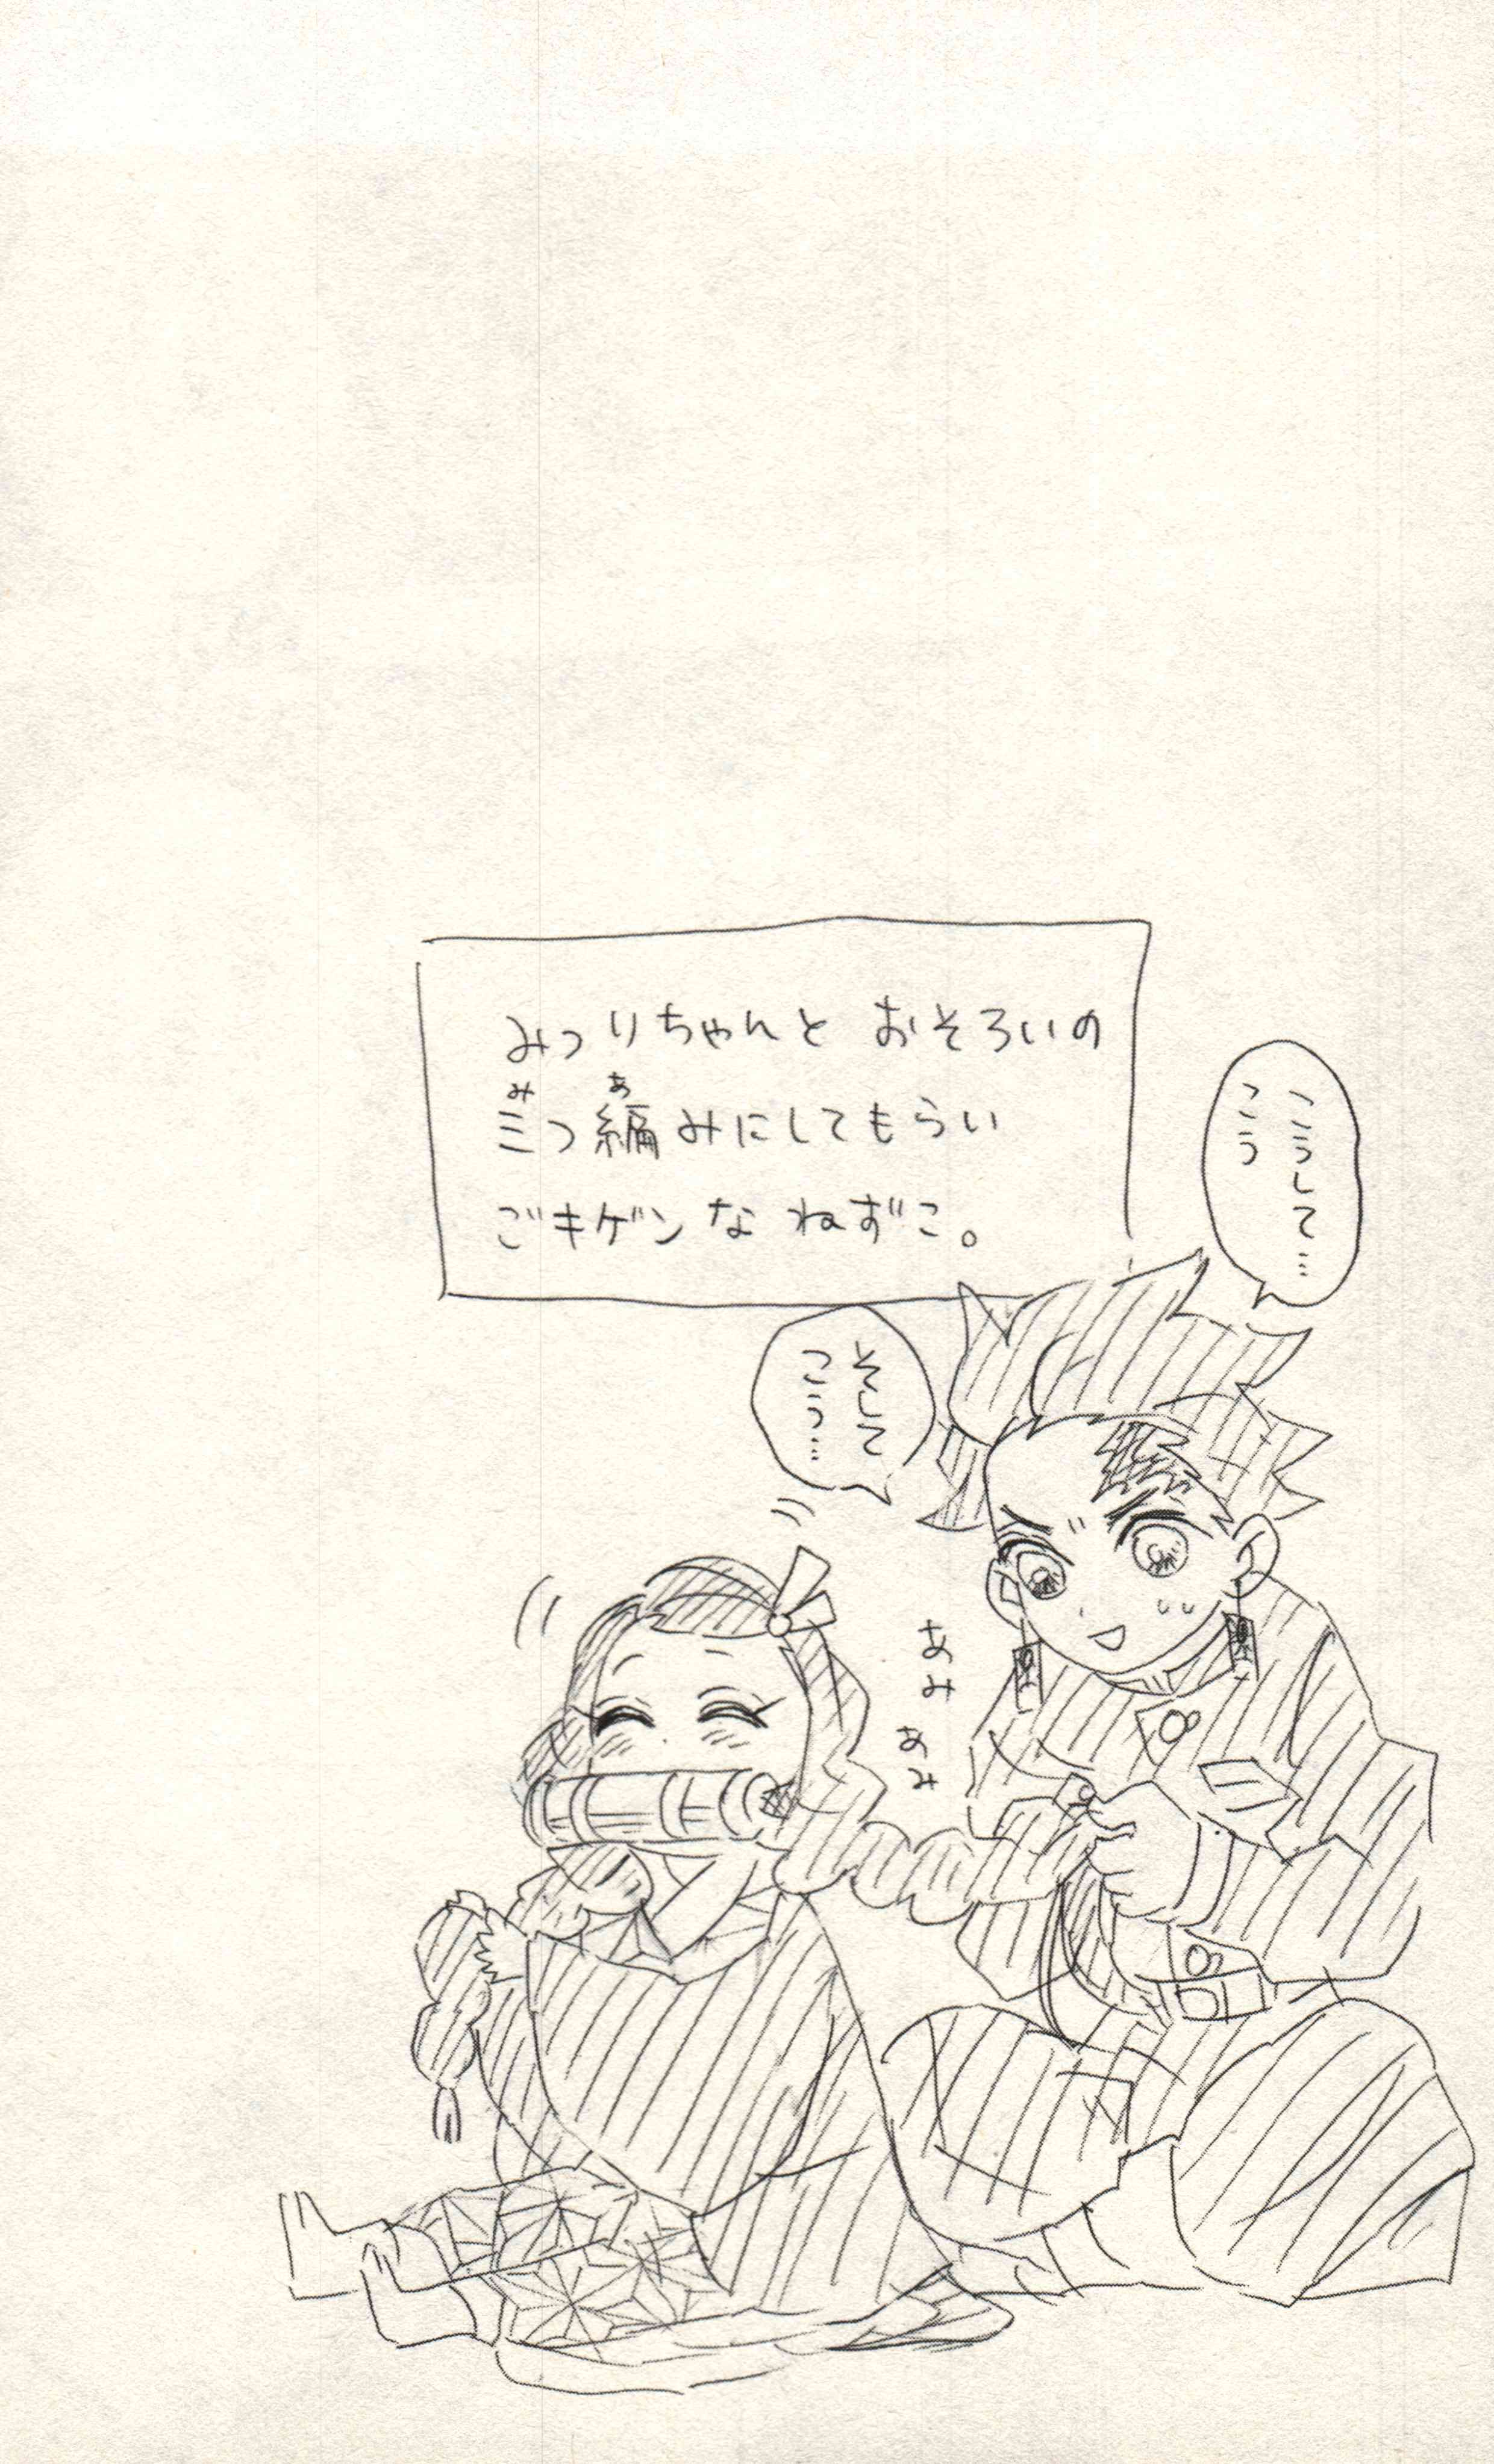 みつりちゃんと おそろいの
三つ編みにしてもらい
ごキゲンな ねずこ。
こうして…
こう
そして
こう…
あみ
あみ